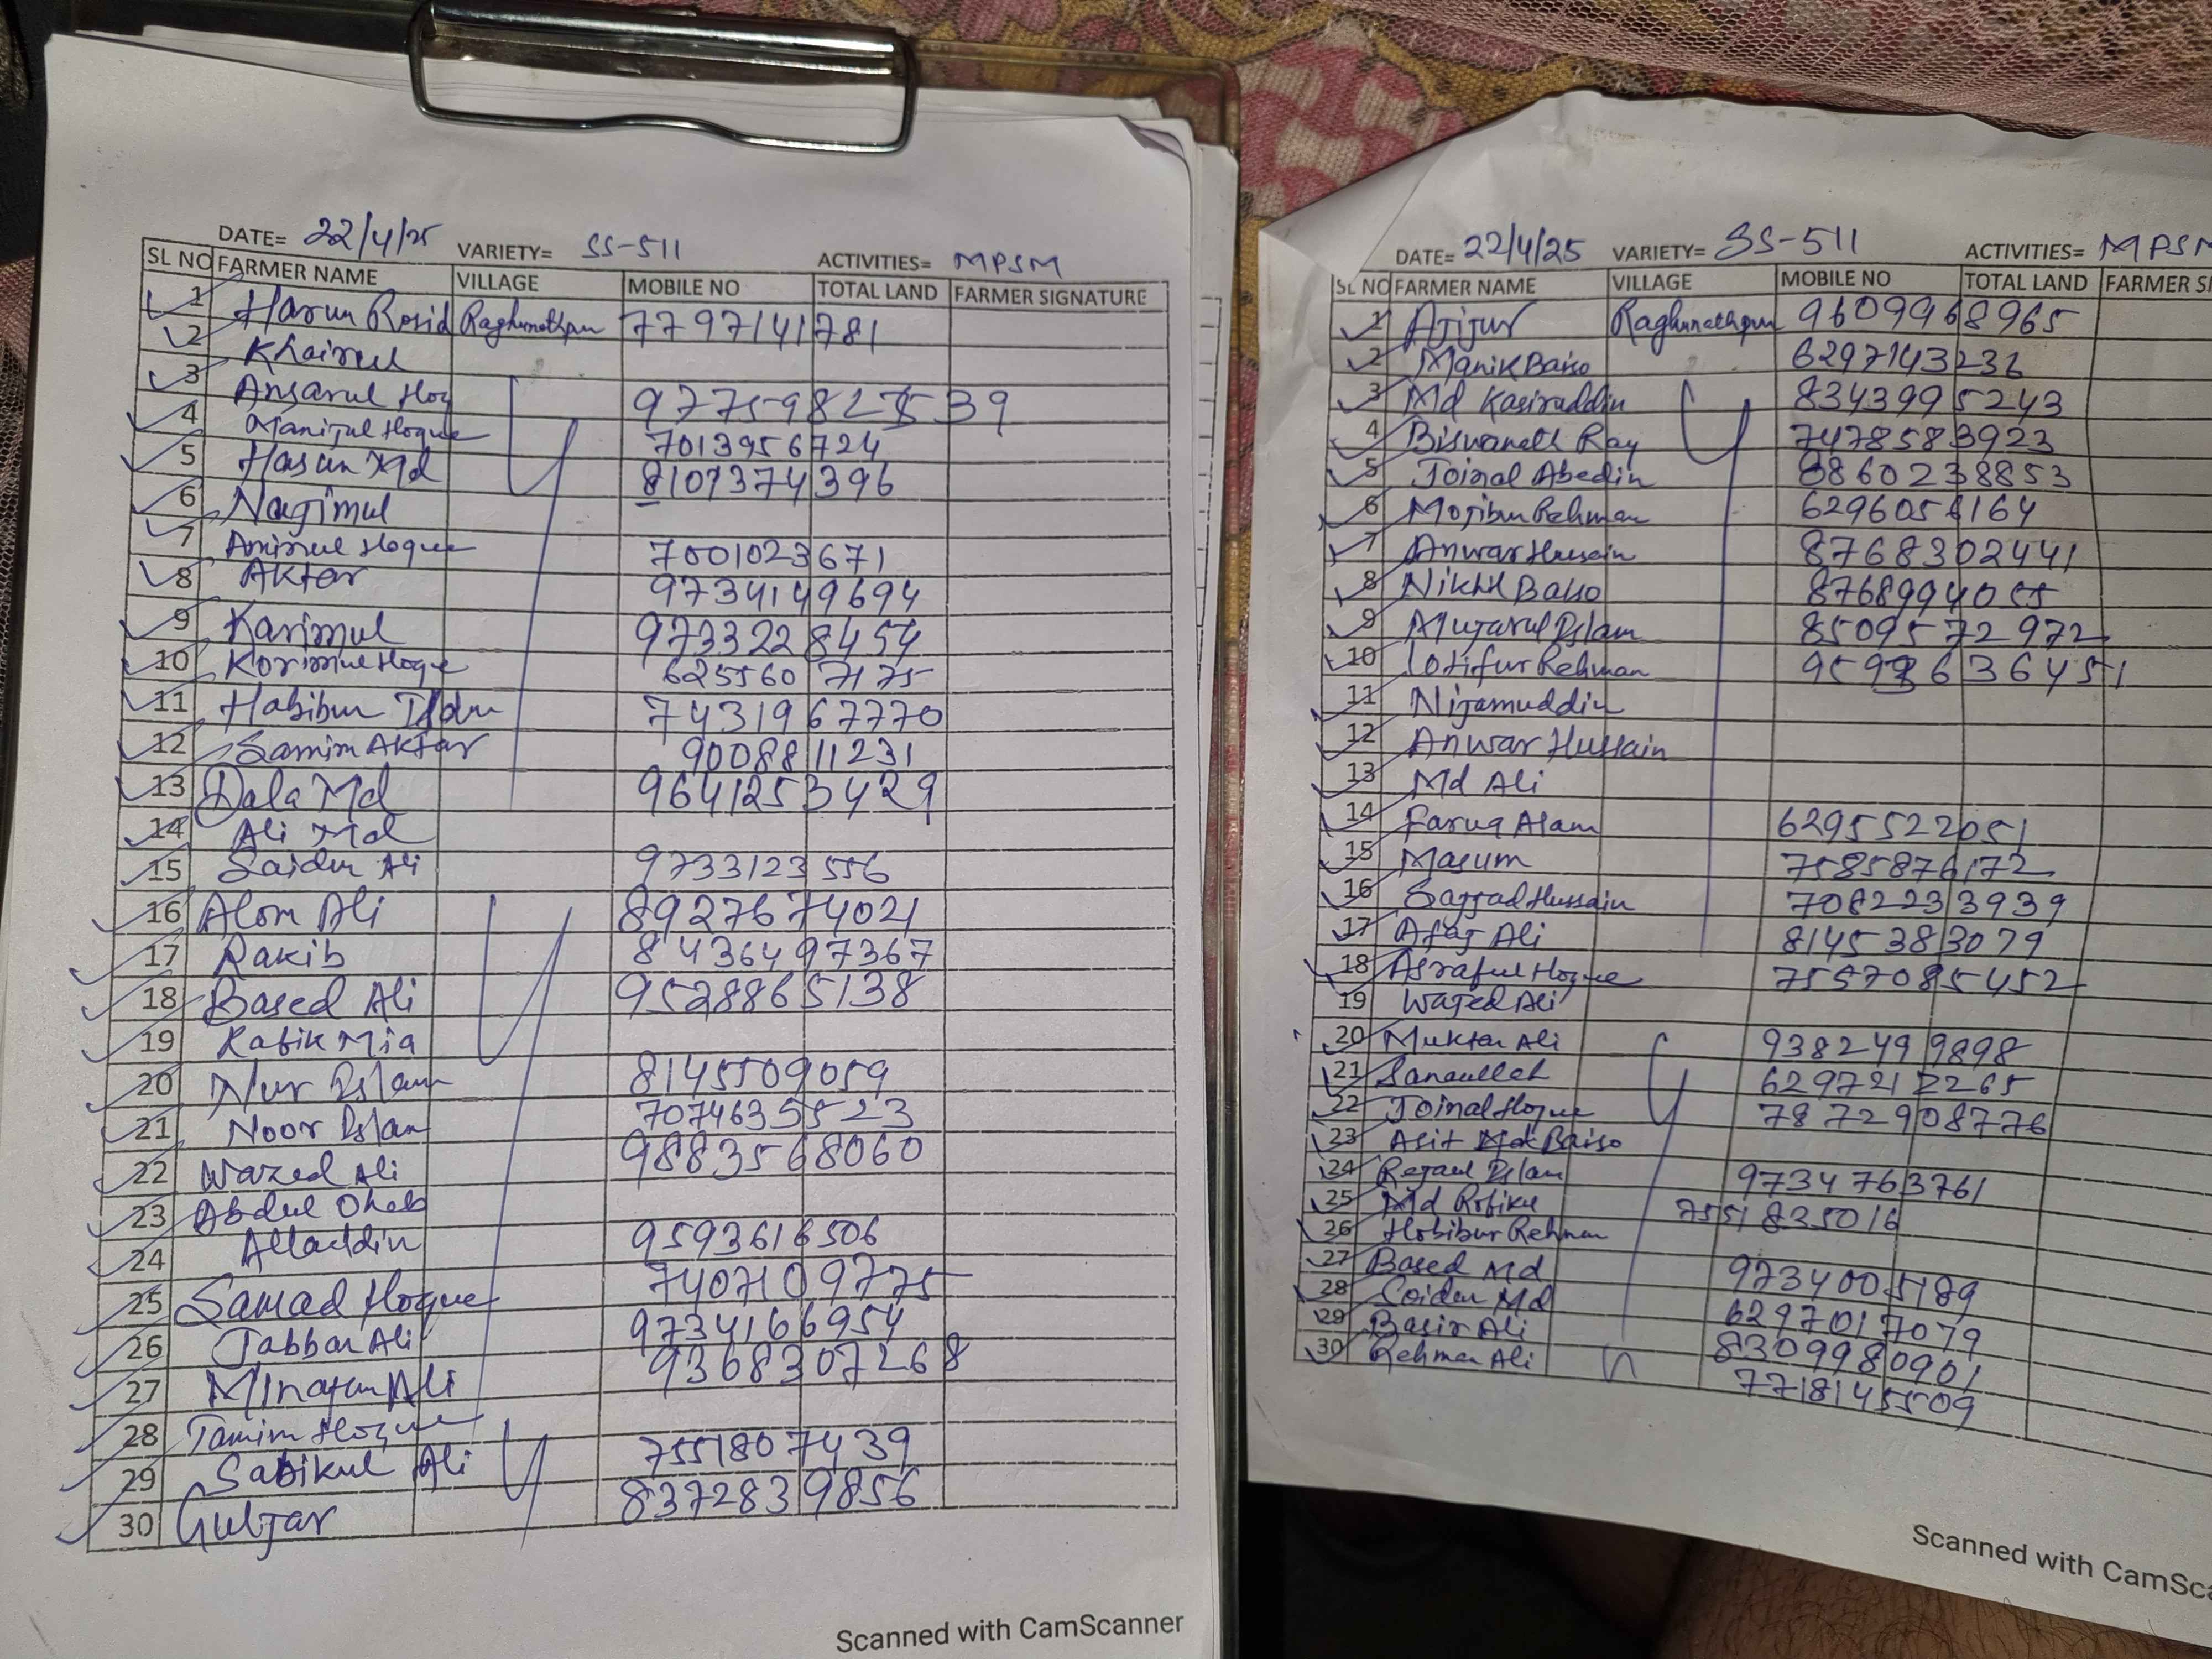 DATE= 22/4/25 VARIETY= SS-511 ACTIVITIES= MPSM
SL NO FARMER NAME VILLAGE MOBILE NO TOTAL LAND FARMER SIGNATURE
1 Harun Rosid Raghunathpur 7797141781
2 Khairul
3 Ansarul Hoq 9775982539
4 Manijul Hoque 7013956724
5 Hasan Md 8101374396
6 Najimul
7 Aminul Hoque 7001023671
8 Aktar 9734149694
9 Karimul 9733228454
10 Korimul Hoque 6255607175
11 Habibur Islam 7431967770
12 Samim Aktar 9008811231
13 Dala Md 9641253429
14 Ali Md
15 Saidur Ali 9733123556
16 Alom Ali 8927674021
17 Rakib 8436497367
18 Based Ali 9528865138
19 Rafik Mia
20 Nur Islam 8145509059
21 Noor Islam 7074635523
22 Wazed Ali 9883568060
23 Abdul Ohab
24 Allauddin 9593616506
25 Samad Hoque 7407109775
26 Jabbar Ali 9734166954
27 Minajan Ali 9368307268
28 Tamim Hoque
29 Sabikul Ali 7551807439
30 Guljar 8372839856
Scanned with CamScanner
DATE= 22/4/25 VARIETY= SS-511 ACTIVITIES= MPSM
SL NO FARMER NAME VILLAGE MOBILE NO TOTAL LAND FARMER SI
1 Ajijur Raghunathpur 9609968965
2 Manik Baiso 6297143236
3 Md Kasiruddin 8343995243
4 Biswanath Ray 7478583923
5 Joinal Abedin 8860238853
6 Mojibur Rehman 6296056164
7 Anwar Hussain 8768302441
8 Nikhil Baiso 8768994055
9 Mujarul Islam 8509572972
10 Lotifur Rehman 9599636451
11 Nijamuddin
12 Anwar Hussain
13 Md Ali
14 Faruq Alam 6295522051
15 Masum 7585876172
16 Sajjad Hussain 7082233939
17 Afaj Ali 8145383079
18 Asraful Hoque 7557085452
19 Wajed Ali
20 Muktar Ali 9382499898
21 Sanaullah 6297212265
22 Joinal Hoque 7872908776
23 Asit Baiso
24 Rejaul Islam 9734763761
25 Md Rofikul 7551835016
26 Hobibur Rehman
27 Based Md 9734005189
28 Soidur Md 6297017079
29 Basir Ali 8309980901
30 Rehman Ali 7718145509
Scanned with CamSca